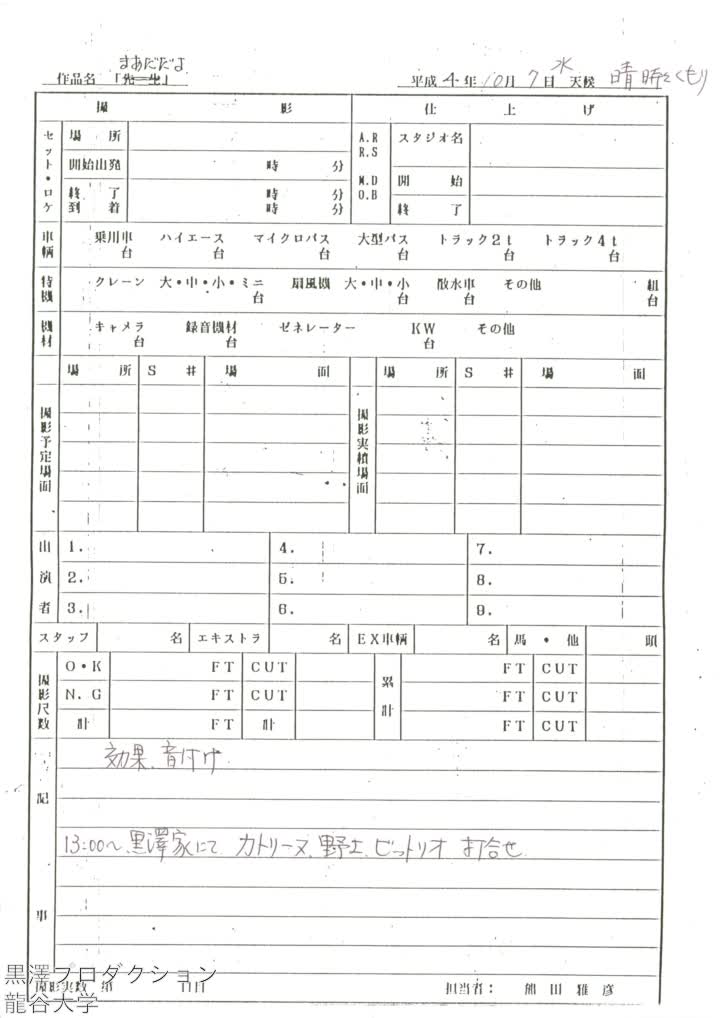 まあだだよ
作品名 「先生」 平成 4 年 10 月 7 日 水 天候 晴時々くもり
撮 影 仕 上 げ
セット・ロケ 場 所 A.R R.S M.D O.B スタジオ名
開始出発 時 分 開 始
終 了 時 分 終 了
到 着 時 分
車輌 乗用車 台 ハイエース 台 マイクロバス 台 大型バス 台 トラック2t 台 トラック4t 台
特機 クレーン 大・中・小・ミニ 台 扇風機 大・中・小 台 散水車 台 その他 組 台
機材 キャメラ 台 録音機材 台 ゼネレーター KW 台 その他
撮影予定場面 場 所 S # 場 面 撮影実績場面 場 所 S # 場 面
出演者 1. 4. 7.
2. 5. 8.
3. 6. 9.
スタッフ 名 エキストラ 名 EX車輌 名 馬・他 頭
撮影尺数 O・K FT CUT 累計 FT CUT
N.G FT CUT FT CUT
計 FT 計 FT CUT
記事
効果、音付け
13:00〜、黒澤家にて カトリーヌ、野上、ビットリオ 打合せ
撮影実数 第 日目 担当者: 熊田雅彦
黒澤プロダクション
龍谷大学